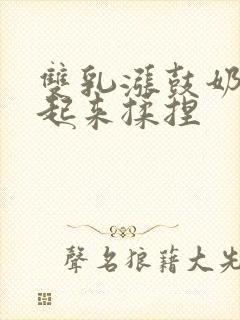 雙乳漲鼓奶
起来揉捏
聲名狼藉大先